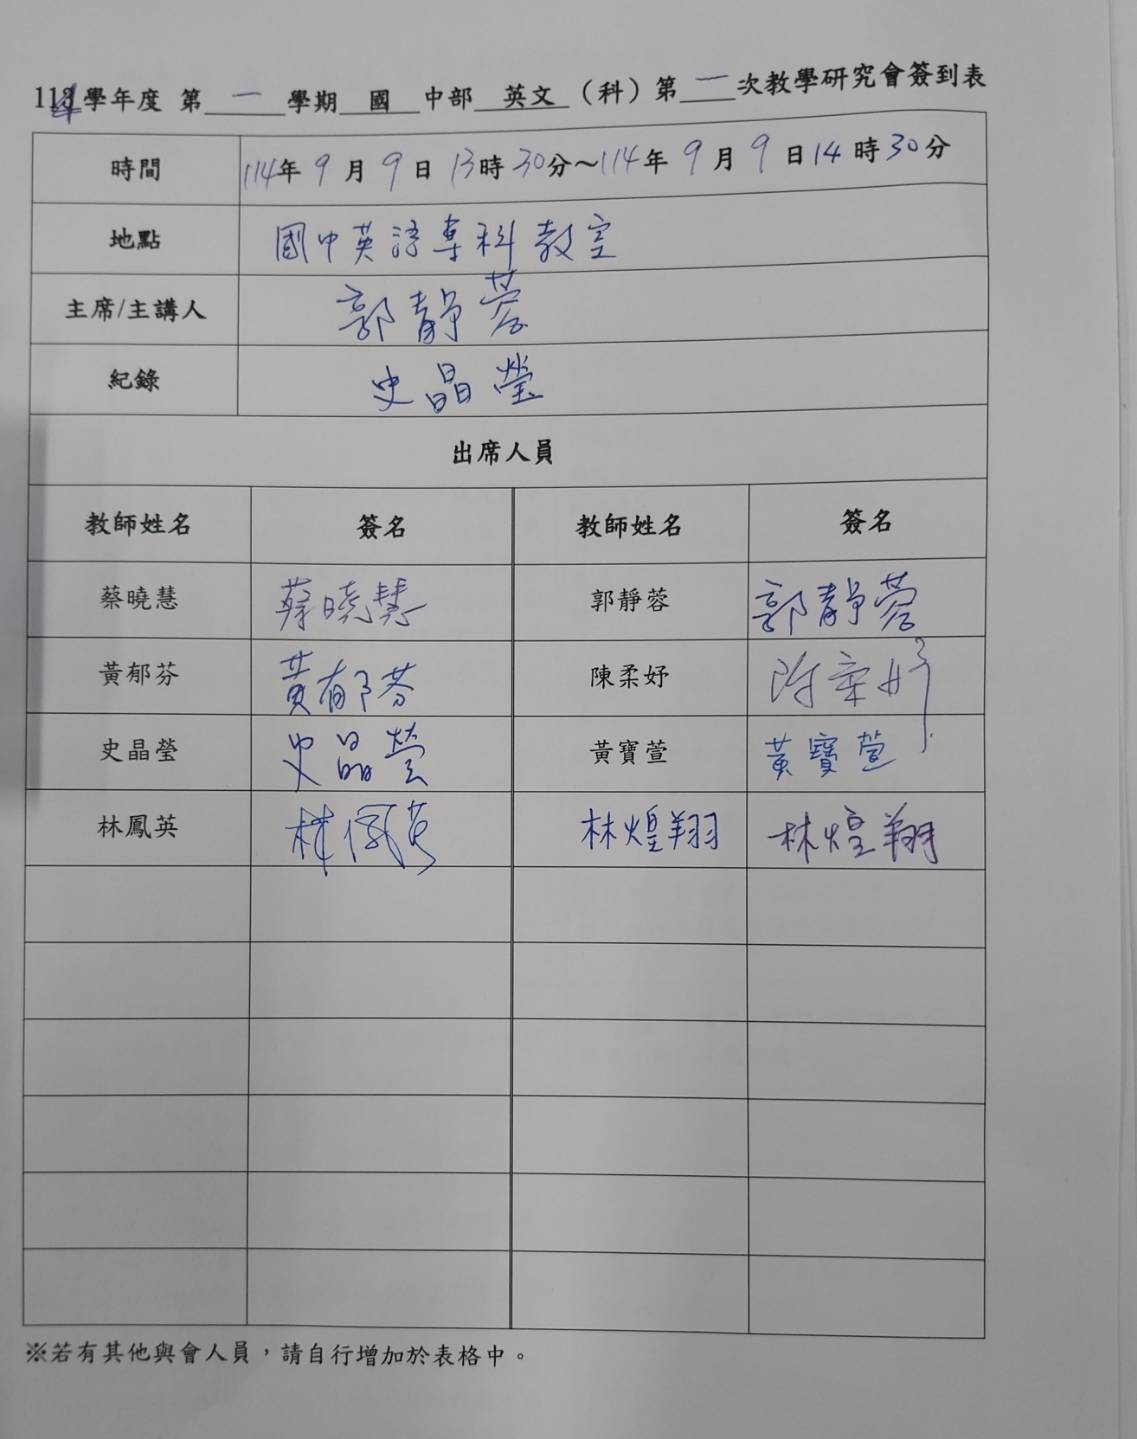 114學年度 第 一 學期 國 中部 英文（科）第 一 次教學研究會簽到表
時間 114年 9 月 9 日 13時 30分～114年 9 月 9 日 14 時 30 分
地點 國中英語專科教室
主席/主講人 郭靜蓉
紀錄 史晶瑩
出席人員
教師姓名 簽名 教師姓名 簽名
蔡曉慧 蔡曉慧 郭靜蓉 郭靜蓉
黃郁芬 黃郁芬 陳柔妤 陳柔妤
史晶瑩 史晶瑩 黃寶萱 黃寶萱
林鳳英 林鳳英 林煌翔 林煌翔
※若有其他與會人員，請自行增加於表格中。